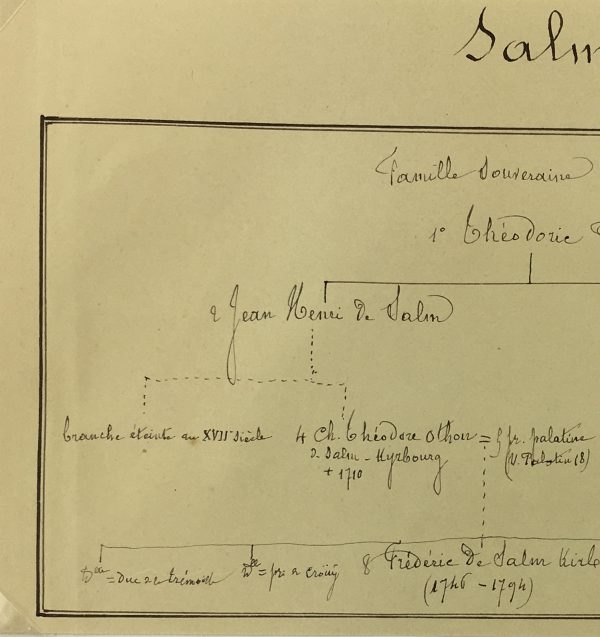 Salm
Famille Souveraine
1° Théodoric
2 Jean Henri de Salm
branche éteinte au XVIIe siècle
4 Ch. Théodore Othon = 5 pr. palatine
de Salm - Kyrbourg (V. Palatin 18)
+ 1710
= Duc de la Trémoille
= pr. de Croüy
8 Frédéric de Salm Kirb
(1746 - 1794)